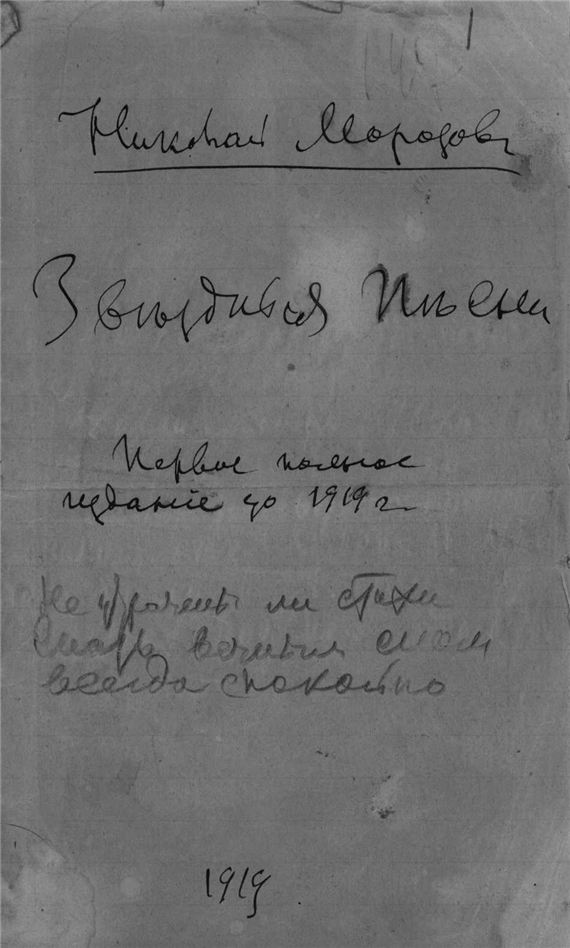 Николай Морозовъ
Звѣздныя Пѣсни
Первое полное
изданіе до 1919 г.
Не ли стихи
всегда спокойно
1919